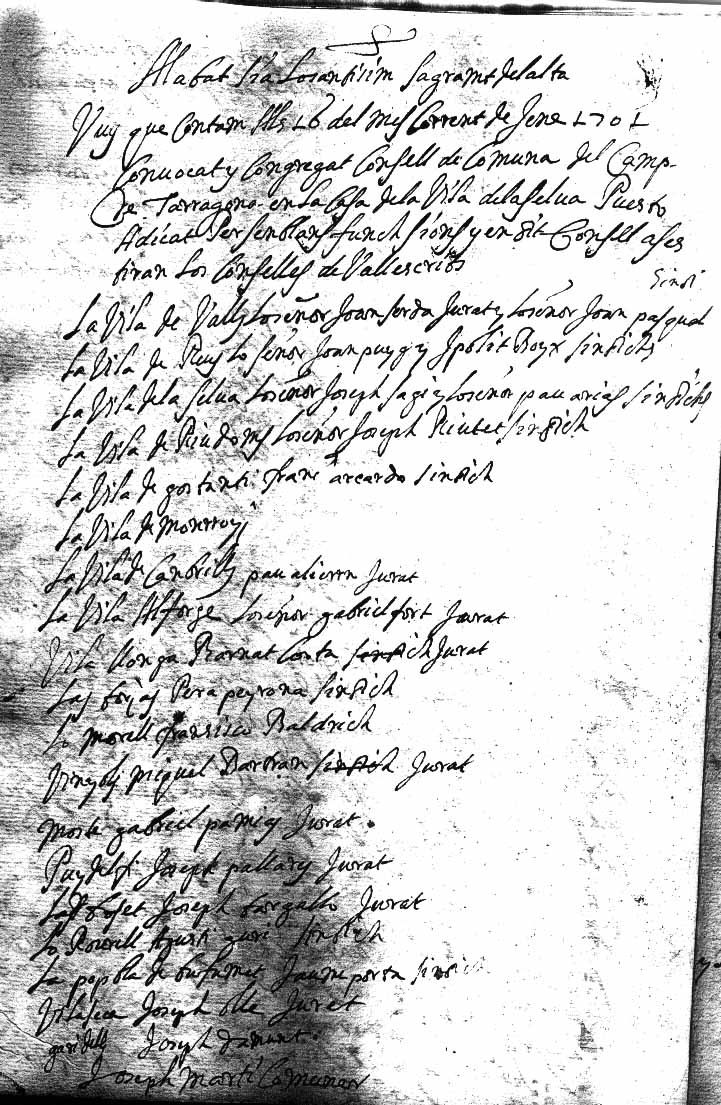 Alabat sia Losantisim Sagramt delalta
Vuy que Contam Als 16 del mes Corrent de Jene 1701
Convocat y Congregat Consell de Comuna del Camp
de Tarragona en La Casa dela Vila delaselva Puesto
Adicat Per senblans funchsions y en dit Consell ases
tiran Los Conselles de Valls escrits
Sindi
La Vila de Valls Loseñor Joan serda Jurat y Loseñor Joan pasqual
La Vila de Reus Lo señor Joan puyg y Ipolit Boyx sindichs
La Vila dela selva Loseñor Joseph sagi y Loseñor pau arias sindichs
La Vila de Riudoms Loseñor Joseph Riubet sindich
La Vila de Franc arcardo sindich
La Vila de Monrroy
La Vila de Canbrills pau Jurat
La Vila Alforge Loseñor gabriel fort Jurat
Vila llonga Barnat Costa sindich Jurat
Las borjas Pera peyrona sindich
Lo Morell fransisco Baldrich
Vinyols Miquel Bartran sindich Jurat
gabriel pamies Jurat
Puydelfi Joseph pallares Jurat
Joseph bargallo Jurat
Lo Rourell sindich
La popbla de Jaume porta sindich
Vilaseca Joseph olle Jurat
garidells Joseph damunt
Joseph Marti Comuner